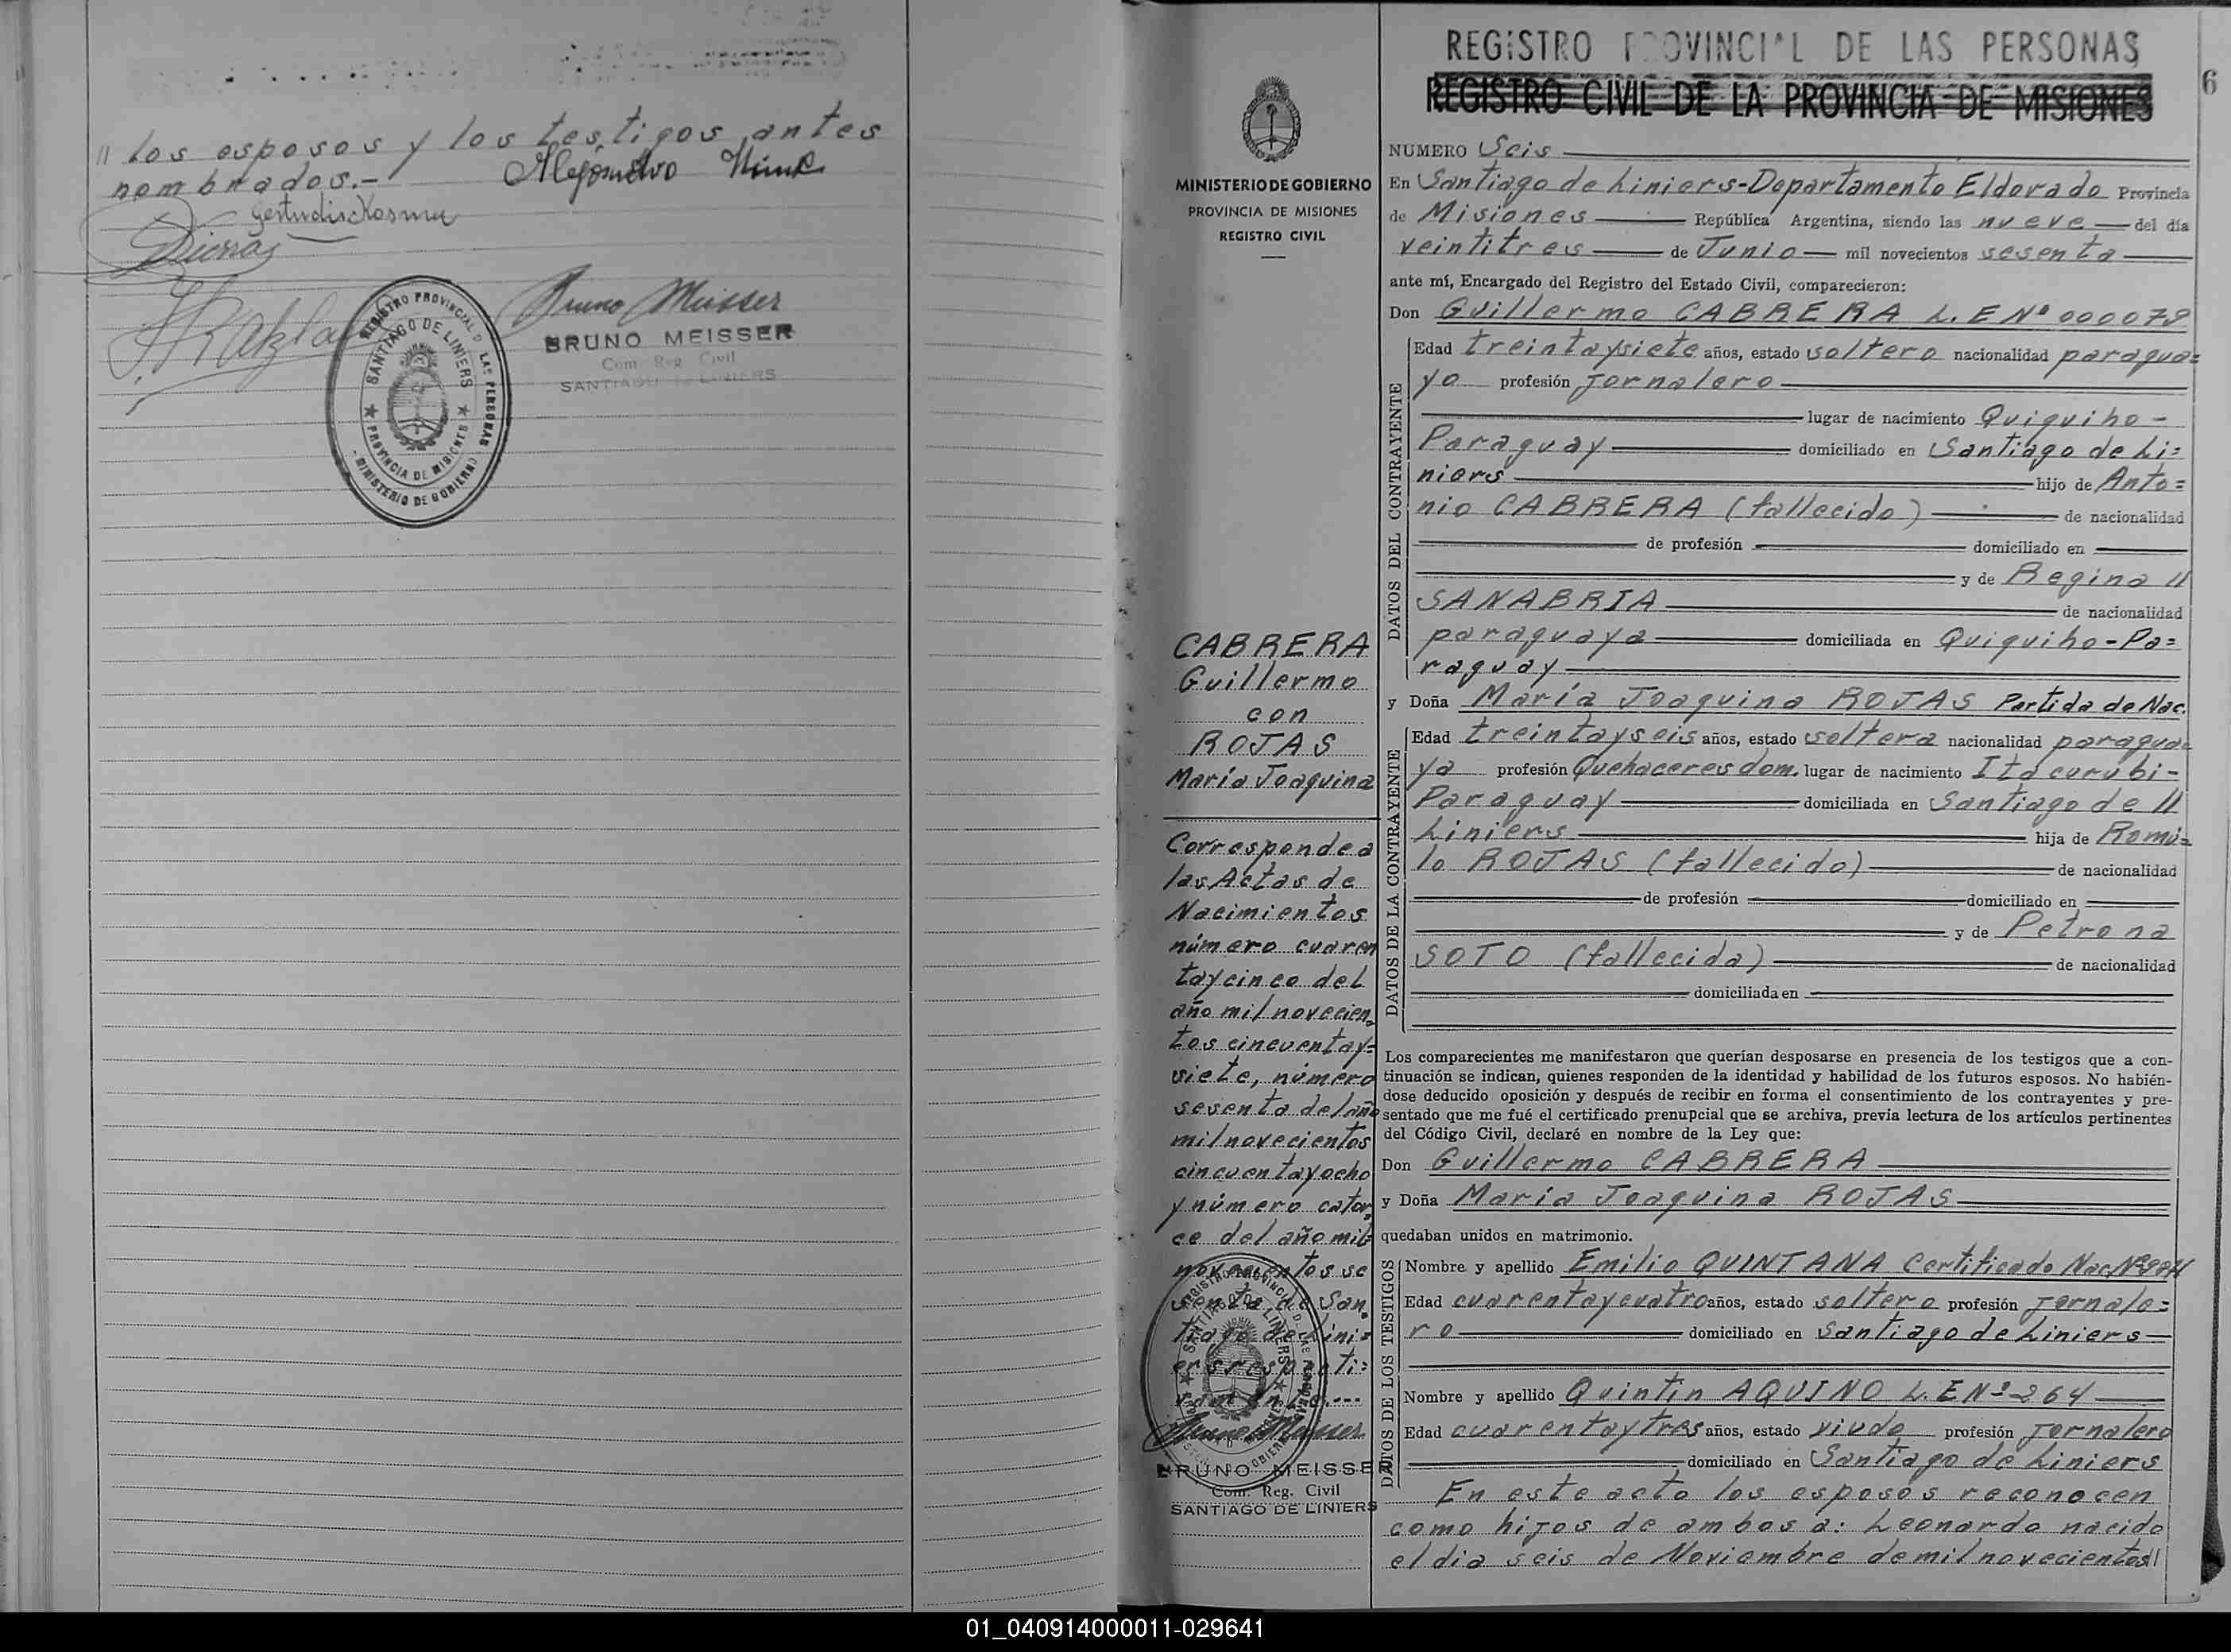 // los esposos y los testigos antes
nombrados.-
Gertrudis Kosmu
REGISTRO PROVINCIAL D LAS PERSONAS
SANTIAGO DE LINIERS
PROVINCIA DE MISIONES
MINISTERIO DE GOBIERNO
Bruno Meisser
BRUNO MEISSER
Com Reg Civil
SANTIAGO DE LINIERS
MINISTERIO DE GOBIERNO
PROVINCIA DE MISIONES
REGISTRO CIVIL
CABRERA
Guillermo
con
ROJAS
María Joaquina
Corresponde a
las Actas de
Nacimientos
número cuaren
taycinco del
año mil novecien
tos cincuentay=
siete, número
sesenta del año
mil novecientos
cincuentayocho
y número cator
ce del año mil
novecientos se
senta, de San
tiago de Lini=
ers respecti=
vamente.---
Bruno Meisser
BRUNO MEISSER
Com. Reg. Civil
SANTIAGO DE LINIERS
REGISTRO PROVINCIAL DE LAS PERSONAS
REGISTRO CIVIL DE LA PROVINCIA DE MISIONES
6
NUMERO Seis
En Santiago de Liniers-Departamento Eldorado Provincia
de Misiones República Argentina, siendo las nueve del día
veintitres de Junio mil novecientos sesenta
ante mí, Encargado del Registro del Estado Civil, comparecieron:
Don Guillermo CABRERA L. E Nº 000078
DATOS DEL CONTRAYENTE
Edad treintaysiete años, estado soltero nacionalidad paragua=
yo profesión Jornalero
lugar de nacimiento Quiquiho-
Paraguay domiciliado en Santiago de Li=
niers hijo de Anto=
nio CABRERA (fallecido) de nacionalidad
de profesión domiciliado en
y de Regina //
SANABRIA de nacionalidad
paraguaya domiciliada en Quiquiho-Pa=
raguay
y Doña María Joaquina ROJAS Partida de Nac.
DATOS DE LA CONTRAYENTE
Edad treintayseis años, estado soltera nacionalidad paragua=
ya profesión Quehaceres dom. lugar de nacimiento Itacurubi-
Paraguay domiciliada en Santiago de //
Liniers hija de Romú=
lo ROJAS (fallecido) de nacionalidad
de profesión domiciliado en
y de Petrona
SOTO (fallecida) de nacionalidad
domiciliada en
Los comparecientes me manifestaron que querían desposarse en presencia de los testigos que a con-
tinuación se indican, quienes responden de la identidad y habilidad de los futuros esposos. No habién-
dose deducido oposición y después de recibir en forma el consentimiento de los contrayentes y pre-
sentado que me fué el certificado prenupcial que se archiva, previa lectura de los artículos pertinentes
del Código Civil, declaré en nombre de la Ley que:
Don Guillermo CABRERA
y Doña María Joaquina ROJAS
quedaban unidos en matrimonio.
DATOS DE LOS TESTIGOS
Nombre y apellido Emilio QUINTANA Certificado Nac.
Edad cuarentaycuatro años, estado soltero profesión Jornale=
ro domiciliado en Santiago de Liniers
Nombre y apellido Quintin AQUINO L. E Nº 264
Edad cuarentaytres años, estado viudo profesión Jornalero
domiciliado en Santiago de Liniers
En este acto los esposos reconocen
como hijos de ambos a: Leonardo nacido
el día seis de Noviembre de mil novecientos//
01_040914000011-029641